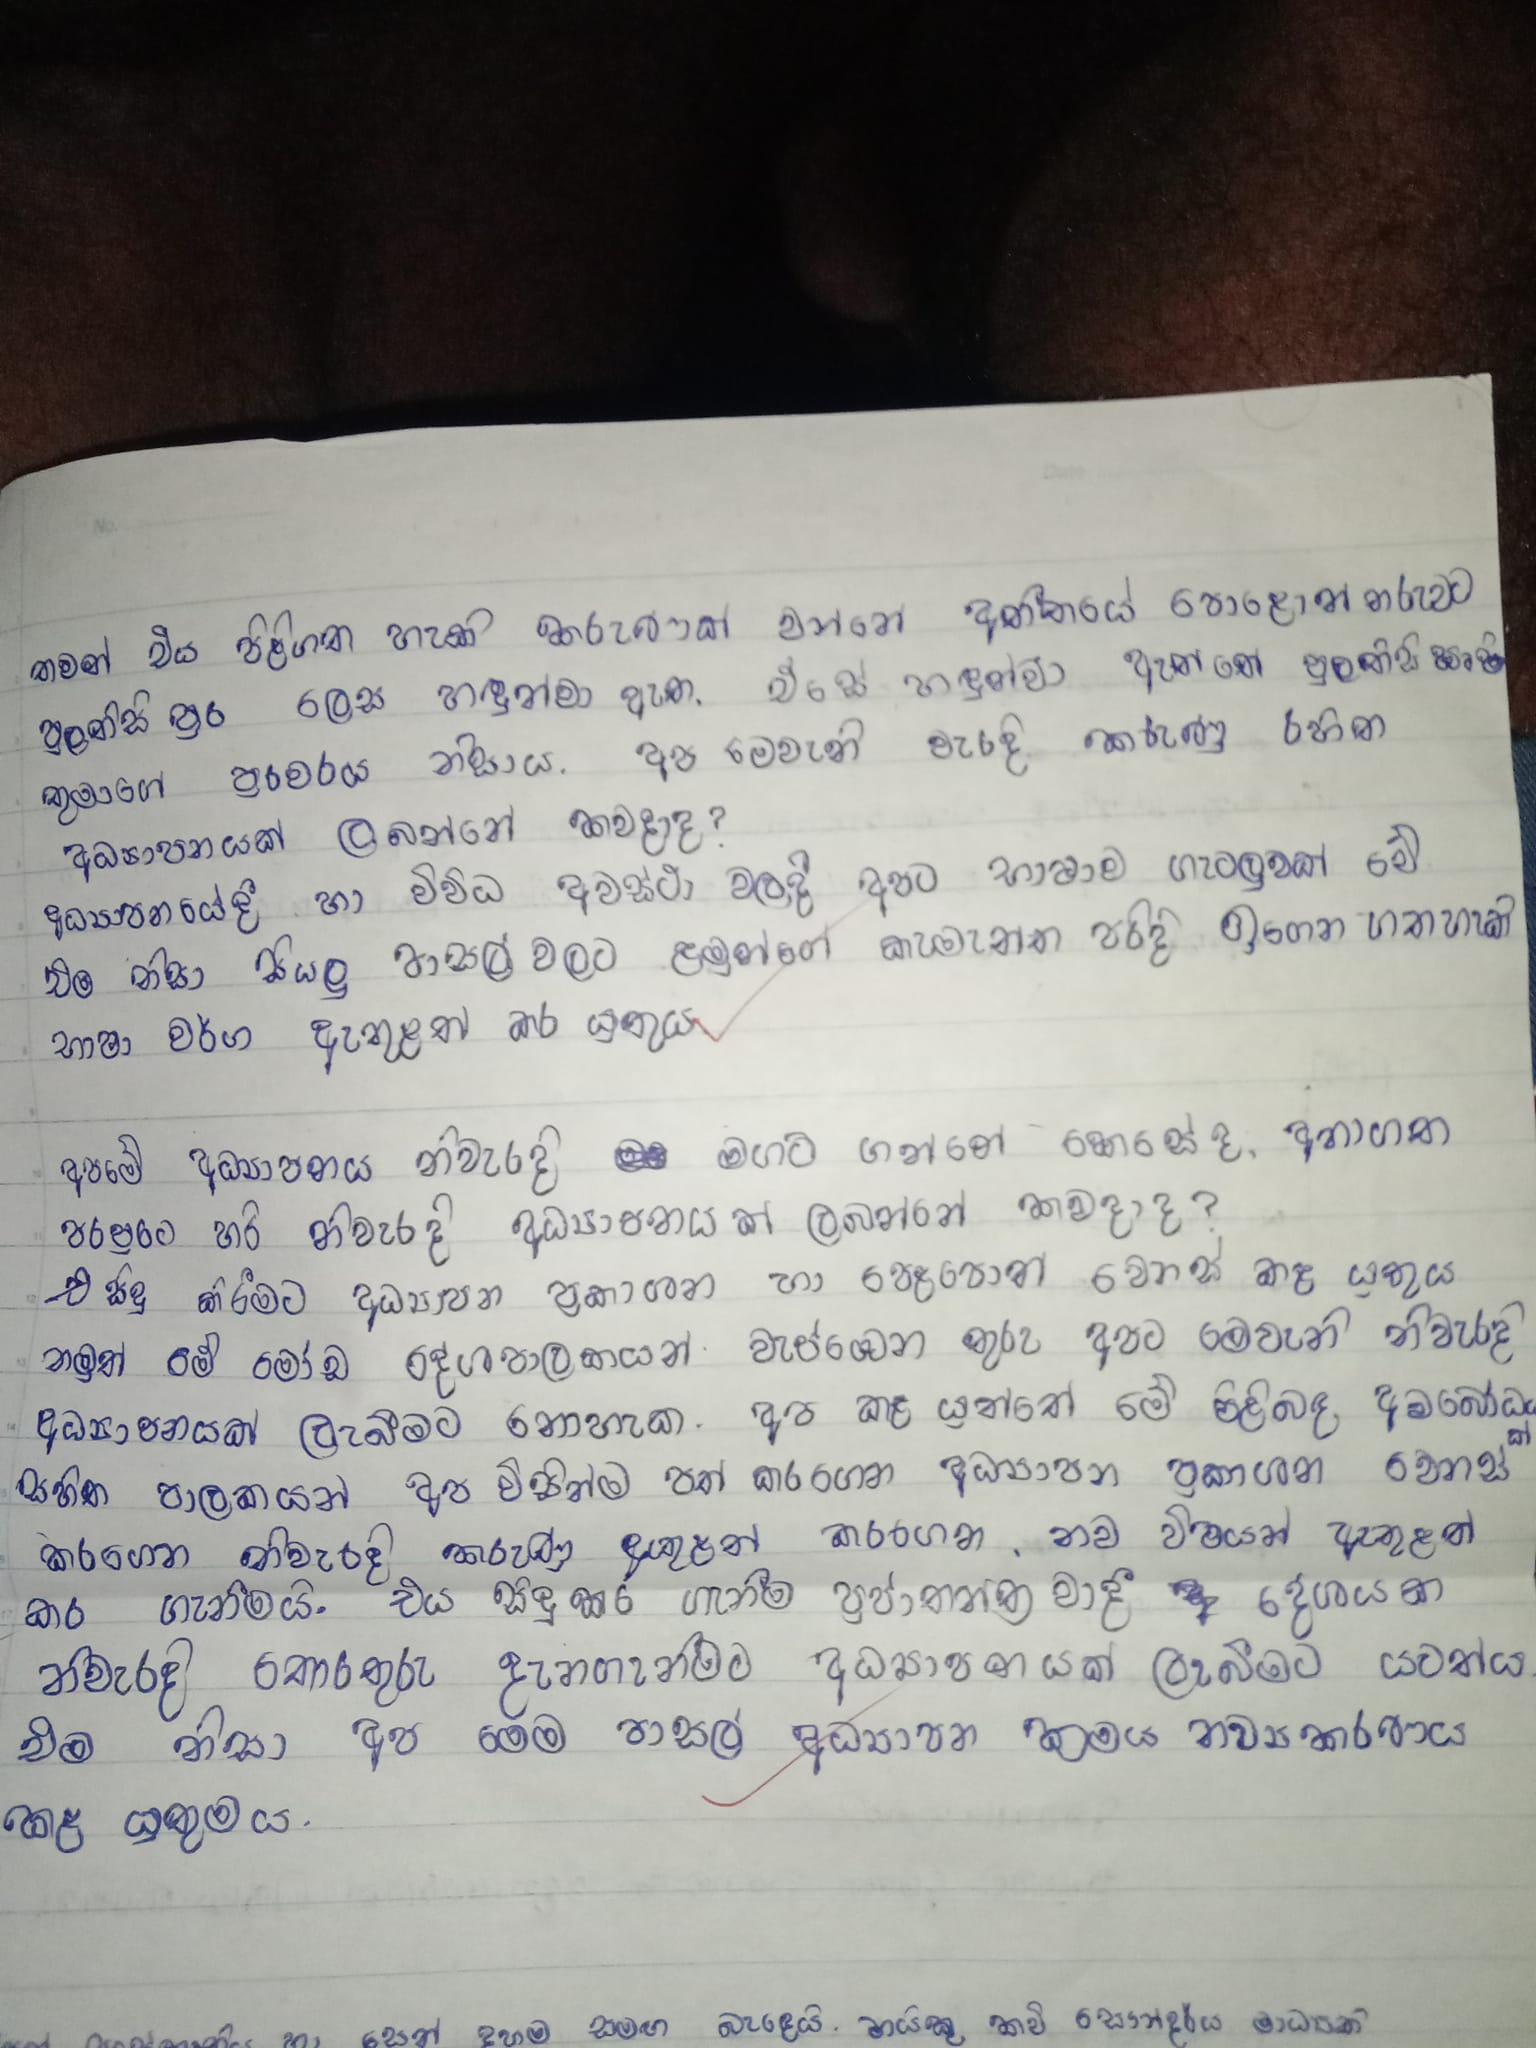 තවත් එය පිළිගත හැකි කරුණක් වන්නේ අතීතයේ පොළොන්නරුවට
පුලතිසි පුර ලෙස හඳුන්වා ඇත. එසේ හඳුන්වා ඇත්තේ පුලතිසි
තුමාගේ පුරවරය නිසාය. අප මෙවැනි වැරදි කරුණු රහිත
අධ්‍යාපනයක් ලබන්නේ කවදාද?
අධ්‍යාපනයේදී හා විවිධ අවස්ථා වලදී අපට භාෂාව ගැටලුවක් වේ
එම නිසා සියලු පාසල් වලට ළමුන්ගේ කැමැත්ත පරිදි ඉගෙන ගතහැකි
භාෂා වර්ග ඇතුළත් කර යුතුය
අපමේ අධ්‍යාපනය නිවැරදි මගට ගන්නේ කෙසේද, අනාගත
පරපුරට හරි නිවැරදි අධ්‍යාපනයක් ලබන්නේ කවදාද?
එ සිදු කිරීමට අධ්‍යාපන ප්‍රකාශන හා පෙළපොත් වෙනස් කළ යුතුය
නමුත් මේ මෝඩ දේශපාලකයන් වැජඹෙන තුරු අපට මෙවැනි නිවැරදි
අධ්‍යාපනයක් ලැබීමට නොහැක. අප කළ යුත්තේ මේ පිළිබඳ අවබෝධයක්
සහිත පාලකයන් අප විසින්ම පත් කරගෙන අධ්‍යාපන ප්‍රකාශන වෙනස්
කරගෙන නිවැරදි කරුණු ඇතුළත් කරගෙන, නව විෂයන් ඇතුළත්
කර ගැනීමයි. එය සිදුකර ගැනීම ප්‍රජාතන්ත්‍රවාදී දේශයක
නිවැරදි තොරතුරු දැනගැනීමට අධ්‍යාපනයක් ලැබීමට යටත්ය.
එම නිසා අප මෙම පාසල් අධ්‍යාපන ක්‍රමය නව්‍යකරණය
කළ යුතුමය.
හා සෙත් දහම සමඟ බැඳෙයි. කවි සෞන්දර්ය